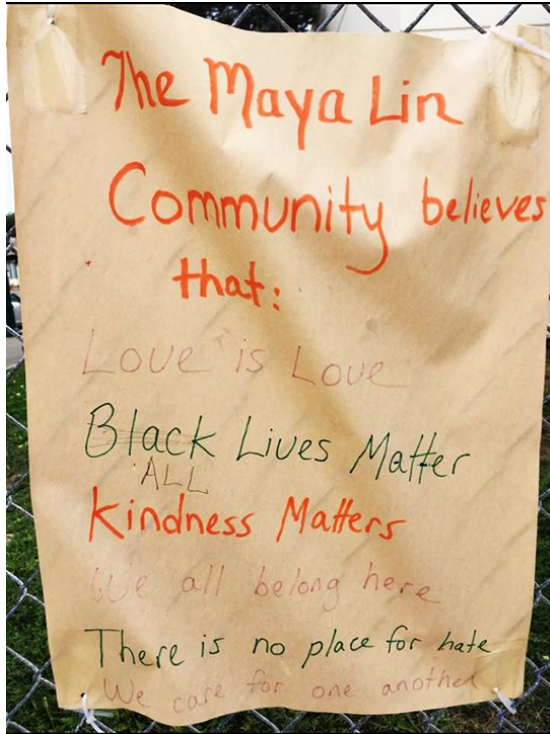 The Maya Lin
Community believes
that:
Love is Love
Black Lives Matter
ALL
Kindness Matters
We all belong here
There is no place for hate
We care for one another